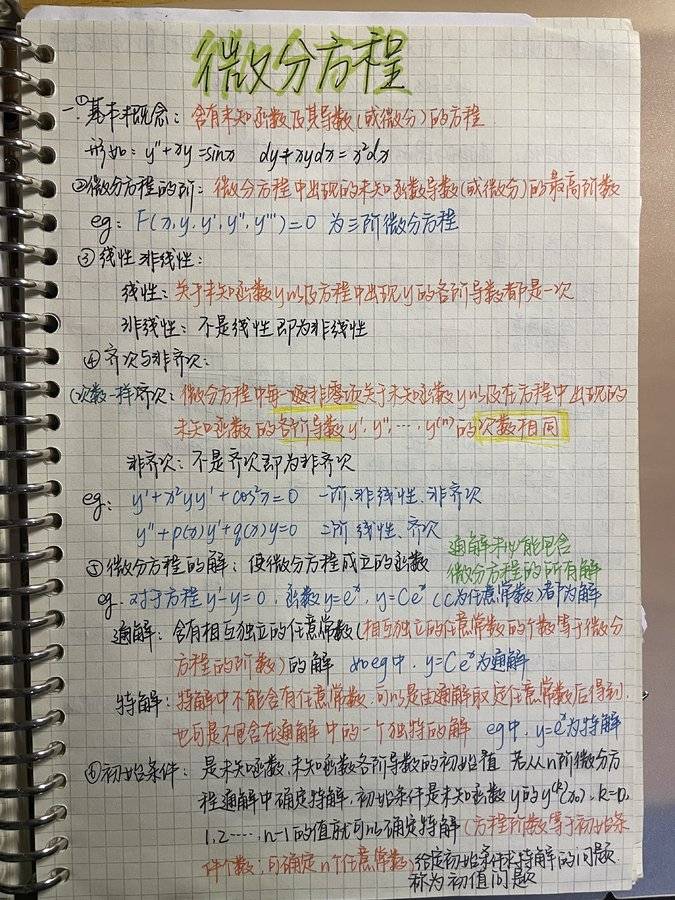 微分方程
一.①基本概念：含有未知函数及其导数(或微分)的方程
形如：y''+xy=sinx dy+xydx=x²dx
②微分方程的阶：微分方程中出现的未知函数导数(或微分)的最高阶数
eg：F(x,y,y',y'',y''')=0 为三阶微分方程
③线性非线性：
线性：关于未知函数y以及方程中出现y的各阶导数都是一次
非线性：不是线性即为非线性
④齐次与非齐次：
(次数一样)齐次：微分方程中每一项非零项关于未知函数y以及在方程中出现的
未知函数的各阶导数y',y'',…,y⁽ⁿ⁾的次数相同
非齐次：不是齐次即为非齐次
eg： y'+x²yy'+cos²x=0 一阶、非线性、非齐次
y''+p(x)y'+q(x)y=0 二阶 线性、齐次
通解未必能包含
微分方程的所有解
⑤微分方程的解：使微分方程成立的函数
eg.对于方程y'-y=0，函数y=eˣ，y=Ceˣ(C为任意常数)都为解
通解：含有相互独立的任意常数(相互独立的任意常数的个数等于微分
方程的阶数)的解 如eg中，y=Ceˣ为通解
特解：特解中不能含有任意常数，可以是由通解取定任意常数后得到，
也可是不包含在通解中的一个独特的解 eg中，y=eˣ为特解
⑥初始条件：是未知函数、未知函数各阶导数的初始值 若从n阶微分方
程通解中确定特解，初始条件是未知函数y的y⁽ᵏ⁾(x₀)，k=0,
1,2……,n-1的值就可以确定特解(方程阶数等于初始条
件个数，可确定n个任意常数)给定初始条件求特解的问题
称为初值问题